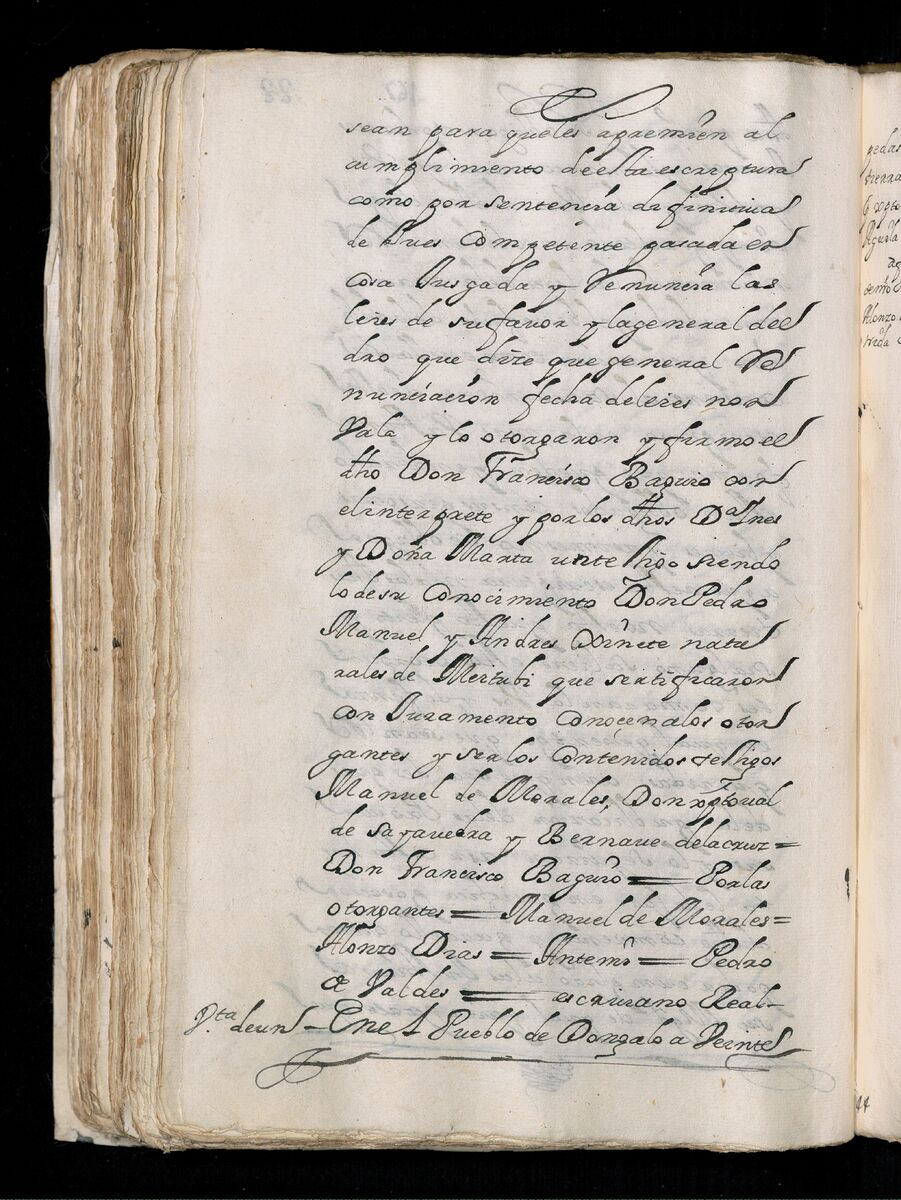 sean para queles apremien al
cumplimiento deesta escriptura
como por sentencia difinitiua
de Jues Competente pasada en
cosa Jusgada y Renuncia las
leies de sufauor y lageneral del
dro que dize que general Re
nunciacion fecha deleies non
Vala y lo otorgaron y firmo el
dho Don Francisco Baguio con
elinterprete y porlos dhos Da Ines
y Doña Maria untestigo siendo
lo desu Conocimiento Don Pedro
Manuel y Andres natu
rales de Meitubi que sertificaron
con Juramento Conocen alos otor
gantes y serlos Contenidos testigos
Manuel de Morales, Don xptoual
de sayauedra y Bernaue delacruz =
Don Francisco Baguio = Porlas
otorgantes = Manuel de Morales =
Alonzo Dias = Antemi = Pedro
de Valdes = escriuano Real -
V.ta deun - Enel Pueblo de Dongalo a Veinte